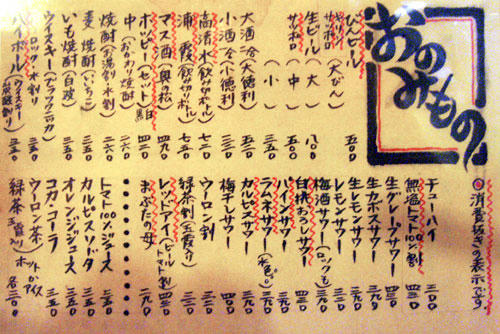 おのみもの
◎消費税抜きの表示です。
びんビール
キリン (大びん) 五〇〇
サッポロ
生ビール (大) 八〇〇
サッポロ (中) 五〇〇
(小) 三五〇
大酒 冷(大徳利)
小酒 冷(小徳利)
高清水(飲みきりボトル) 七二〇
浦霞(飲みきりボトル)
マス酒(奥の松) 四九〇
ホッピー(セット) 白 黒 四二〇
中(おかわり焼酎)
焼酎(お湯割り・水割り) 二六〇
麦焼酎(いいちこ) 三五〇
いも焼酎(白波) 三五〇
ウイスキー(ブラックニッカ)
ロック・水割り 三五〇
ハイボール(ウイスキー炭酸割り) 三五〇
チューハイ 三〇〇
無塩トマト100%割 四三〇
生グレープサワー 四三〇
生カボスサワー 四三〇
生レモンサワー 四三〇
レモンサワー 三五〇
梅酒サワー(ロックも) 三九〇
白桃おろしサワー 四三〇
パインサワー 三九〇
ラムネサワー(水色) 三九〇
カルピスサワー 三九〇
梅干しサワー 三九〇
ウーロン割 三九〇
緑茶割(玉露入り) 三九〇
レッドアイ(ビールトマト割) 四三〇
まぶたの母 三九〇
トマト100%ジュース 三五〇
カルピスソーダ 三五〇
オレンジジュース 三五〇
コカ・コーラ 三五〇
ウーロン茶 ホットかアイス
緑茶(玉露入り) 各三〇〇